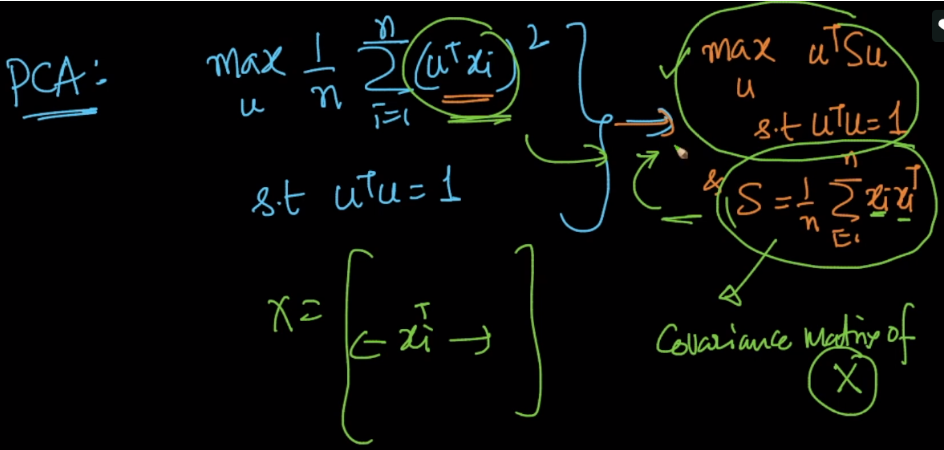 PCA:
max_u 1/n Σ_{i=1}^{n} (uᵀxi)²
s.t uᵀu = 1
max_u uᵀSu
s.t uᵀu = 1
& S = 1/n Σ_{i=1}^{n} xi xiᵀ
X = [← xiᵀ →]
Covariance Matrix of
X